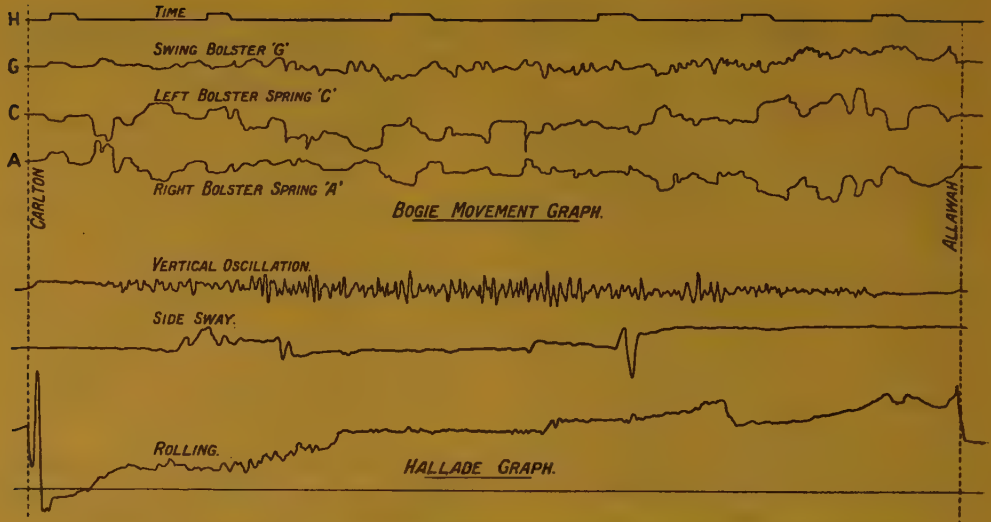 H TIME
G SWING BOLSTER 'G'
C LEFT BOLSTER SPRING 'C'
A
RIGHT BOLSTER SPRING 'A'
CARLTON
ALLAWAH
BOGIE MOVEMENT GRAPH.
VERTICAL OSCILLATION.
SIDE SWAY.
ROLLING.
HALLADE GRAPH.